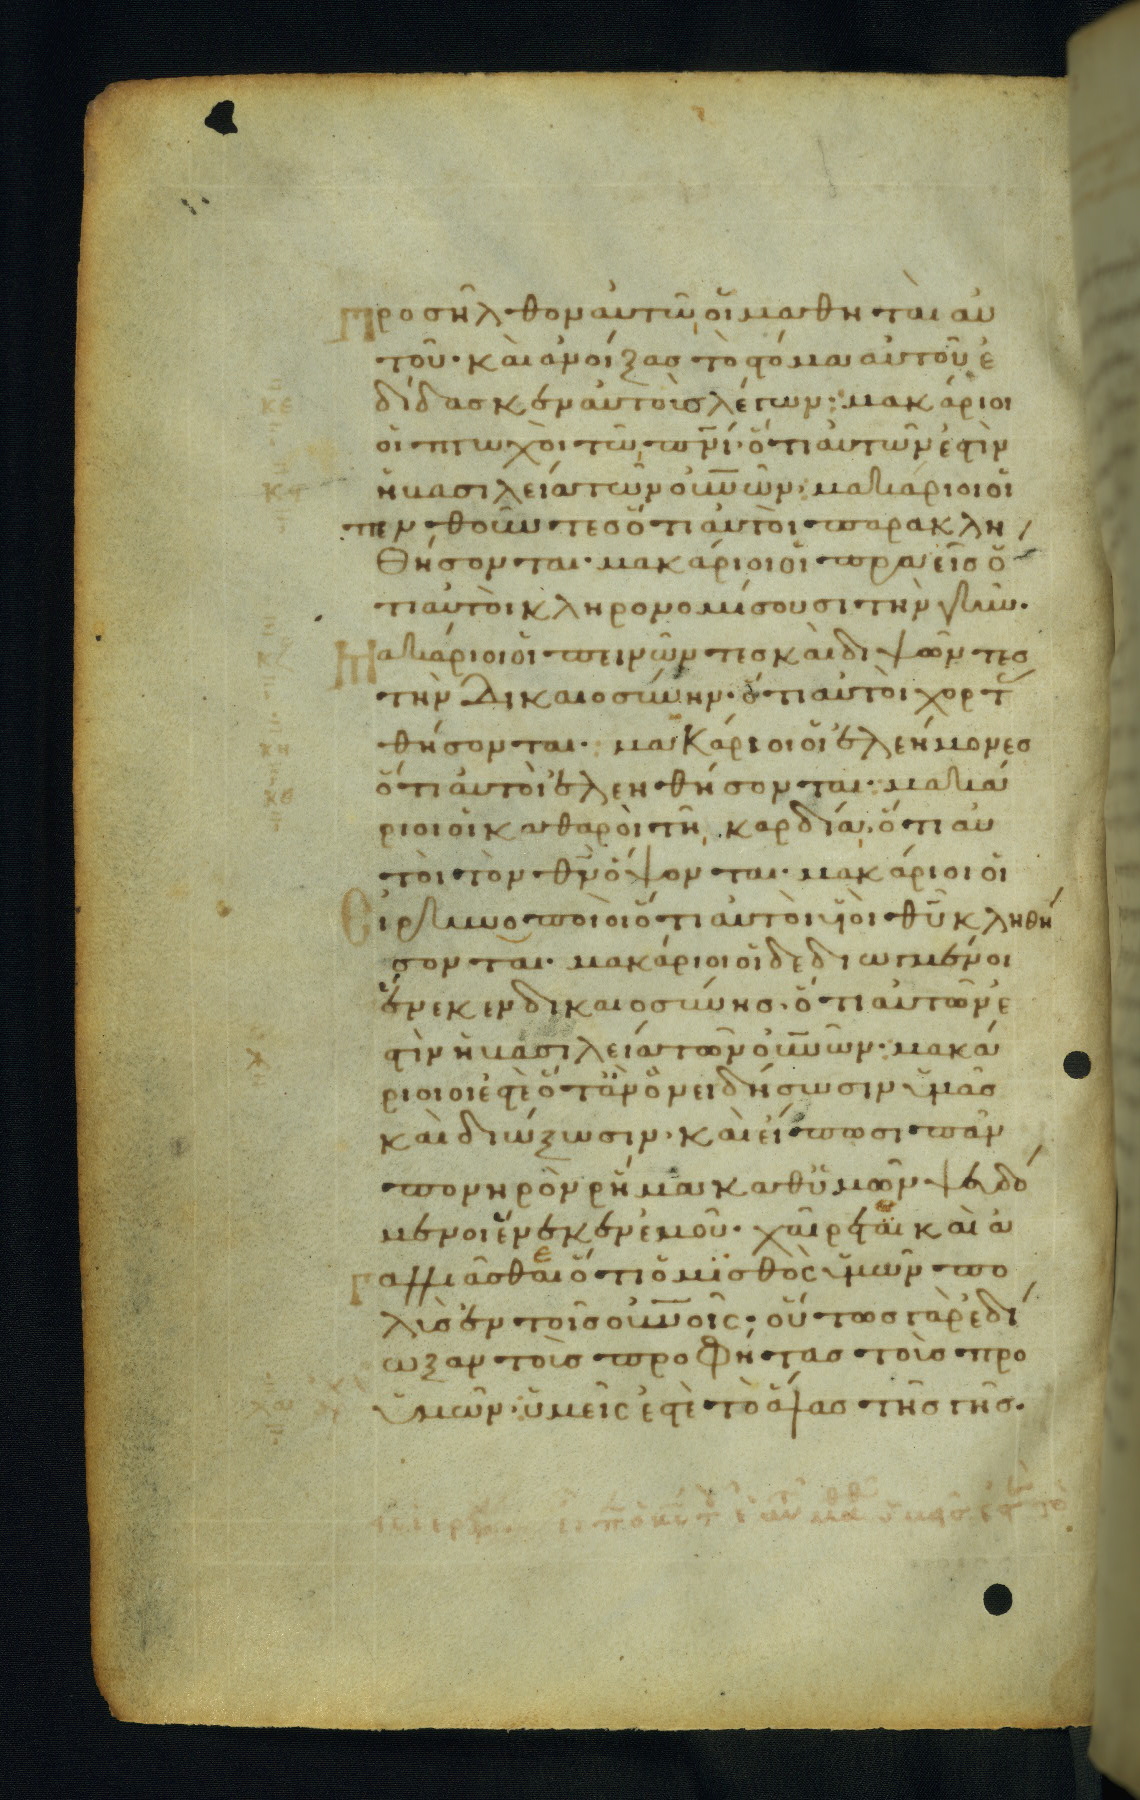 Προσῆλθον αυτῶ, οἱ μαθηταὶ αυ
τοῦ· καὶ ἀνοίξας τὸ στόμα αυτοῦ ἐ
δίδασκεν αὐτοὺς λέγων· μακάριοι
οἱ πτωχοὶ τῶ πνί· ὅτι αυτῶν ἐστὶν
ἡ βασιλεία τῶν οὐνῶν· μακάριοι οἱ
πενθοῦντες ὅτι αυτοὶ παρακλη
Θήσονται· μακάριοι οἱ πραεῖς ὅ
τι αυτοὶ κληρονομίσουσι τὴν γῆν·
Μακάριοι οἱ πεινῶντες καὶ διψῶντες
τὴν Δικαιοσύνην· ὅτι αυτοὶ χορτ
θήσονται· μακάριοι οἱ ἐλεήμονες
ὅτι αυτοὶ ἐλεηθήσονται· μακά
ριοι οἱ καθαροὶ τῆ, καρδία, ὅτι αυ
τοὶ τὸν θν ὄψονται· μακάριοι οἱ
Εἰρηνοποιοὶ ὅτι αυτοὶ υἱοὶ θυ κληθή
σονται· μακάριοι οἱ δεδιωγμένοι
ἕνεκεν δικαιοσύνης· ὅτι αυτῶν ἐ
στὶν ἡ βασιλεία τῶν οὐνῶν· μακά
ριοι οι ἐστὲ ὅταν ὀνειδήσωσιν ὑμᾶς
καὶ διώξωσιν· καὶ εἴπωσι πᾶν
πονηρὸν ρῆμα καθ ὑμῶν ψευδό
μενοι ἕνεκεν ἐμοῦ· χαίρεται καὶ ἀ
γαλλιᾶσθαι ὅτι ὁ μισθὸς ὑμῶν πο
λὺς ἐν τοῖς οὐνοῖς· οὕτως γὰρ ἐδί
ωξαν τοὺς προφήτας τοὺς πρὸ
ὑμῶν· ὑμεῖς ἐστὲ τὸ ἅλας τῆς γῆς·
κε
κς
κζ
κη
κθ
λ
λα